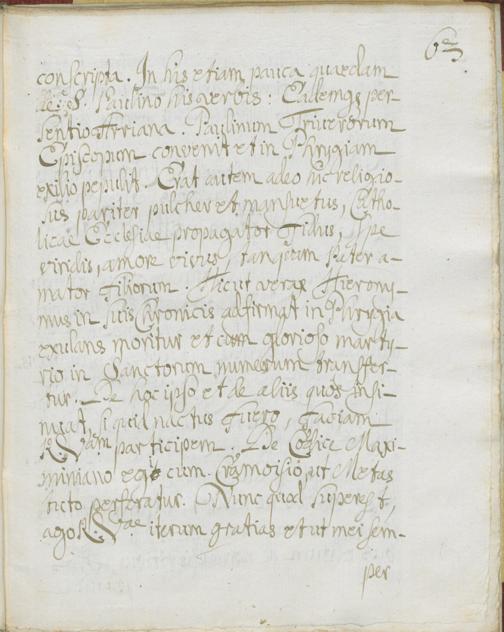 conscripta. In his etiam pauca quaedam
de S. Paulino his verbis: Eademq; per-
sentio Arriana. Paulinum Trivirorum
Episcopum convenit et in Phrigiam
exilio pepulit. Erat autem adeo hic religio-
sus pariter pulcher et mansuetus, Catho-
licae Ecclesiae propagator fidus, spe
viridis, amore vivus, tanquam Pater a-
mator filiorum. Sicut verax Hieroni-
mus in suis Chronicis adfirmat in Phrygia
exulans moritur et cum glorioso marty-
rio in Sanctorum numerum transfer-
tur. De hoc ipso et de aliis quos insi-
nuat, si quid nactus fuero, faciam
R. Vam participem. De Codice Maxi-
miniano egi cum Cramoisio, ut Metas
ticto perferatur. Nunc quod superest,
ago R. Vae iterum gratias et ut mei sem-
per